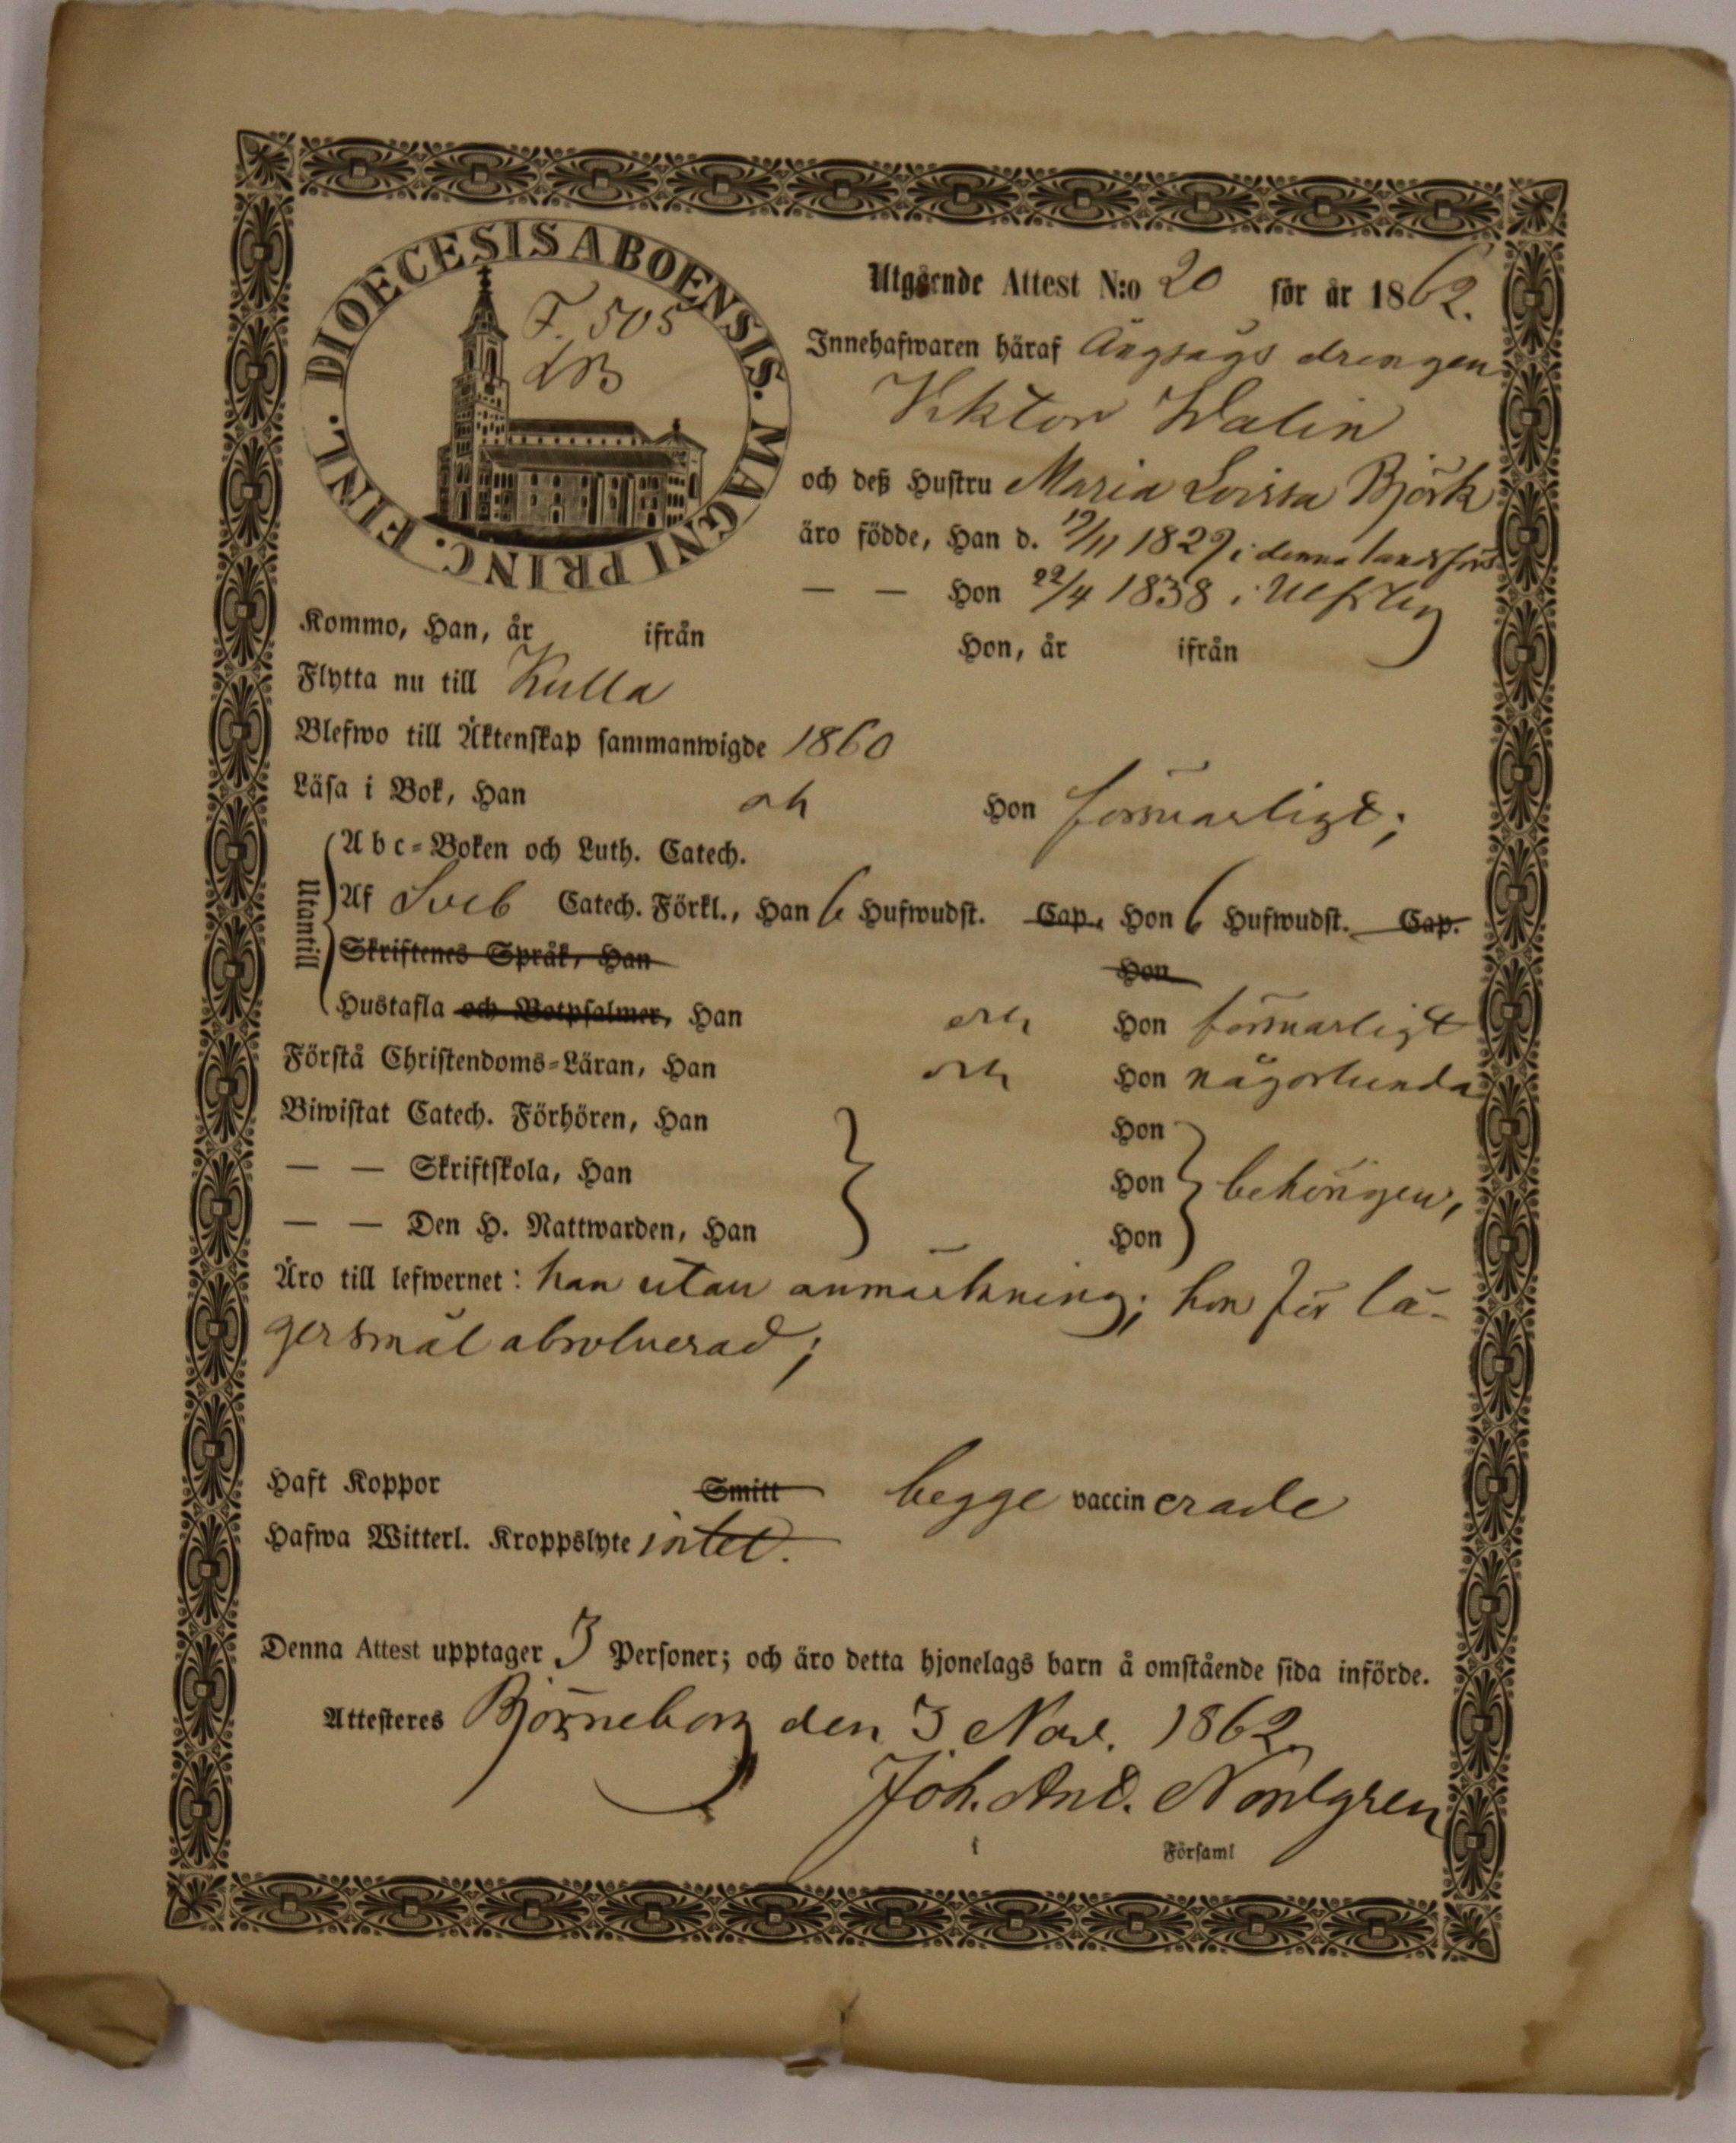 DIOECESIS ABOENSIS. MAGNI PRINC. FINL.
F. 505
Utgående Attest N:o 20 för år 1862.
Innehafwaren häraf Ångsågs drengen
Viktor Walin
och deß Hustru Maria Lovisa Björk
äro födde, Han d. 19/11 1829 i denna landsförs
— — Hon 22/4 1838 i Ulfsby
Kommo, Han, år ifrån Hon, år ifrån
Flytta nu till Kulla
Blefwo till Äktenskap sammanwigde 1860
Läsa i Bok, Han och Hon försvarligt;
Utantill
Abc-Boken och Luth. Catech.
Af Sveb Catech. Förkl., Han 6 Hufwudst. Cap., Hon 6 Hufwudst. Cap.
Skriftenes Språk, Han Hon
Hustafla och Botpsalmer, Han och Hon försvarligt
Förstå Christendoms-Läran, Han och Hon någorlunda
Biwistat Catech. Förhören, Han Hon
— — Skriftskola, Han Hon behörigen,
— — Den H. Nattwarden, Han Hon
Äro till lefwernet: han utan anmärkning; hon för lä-
gersmål absolverad;
Haft Koppor Smitt begge vaccinerade
Hafwa Witterl. Kroppslyte intet.
Denna Attest upptager 3 Personer; och äro detta hjonelags barn å omstående sida införde.
Attesteres Björneborg den 3 Nov. 1862.
Joh. And. Nordgren
i Församl